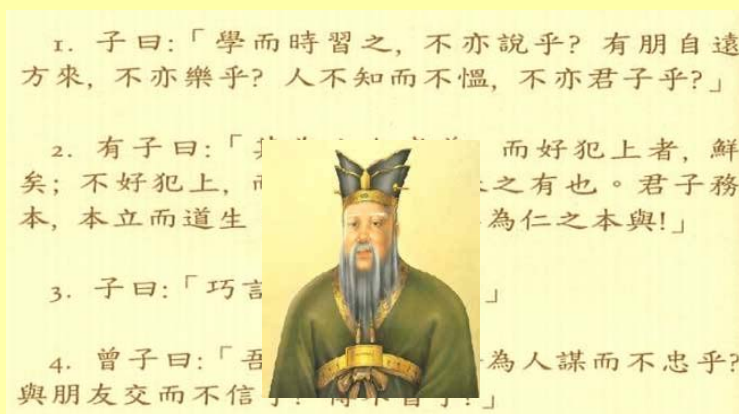 1. 子曰:「學而時習之, 不亦說乎? 有朋自遠
方來, 不亦樂乎? 人不知而不慍, 不亦君子乎?」
2. 有子曰:「其 而好犯上者, 鮮
矣; 不好犯上, 之有也。君子務
本, 本立而道生 為仁之本與!」
3. 子曰:「巧言 」
4. 曾子曰:「吾 為人謀而不忠乎?
與朋友交而不信乎? 傳不習乎?」